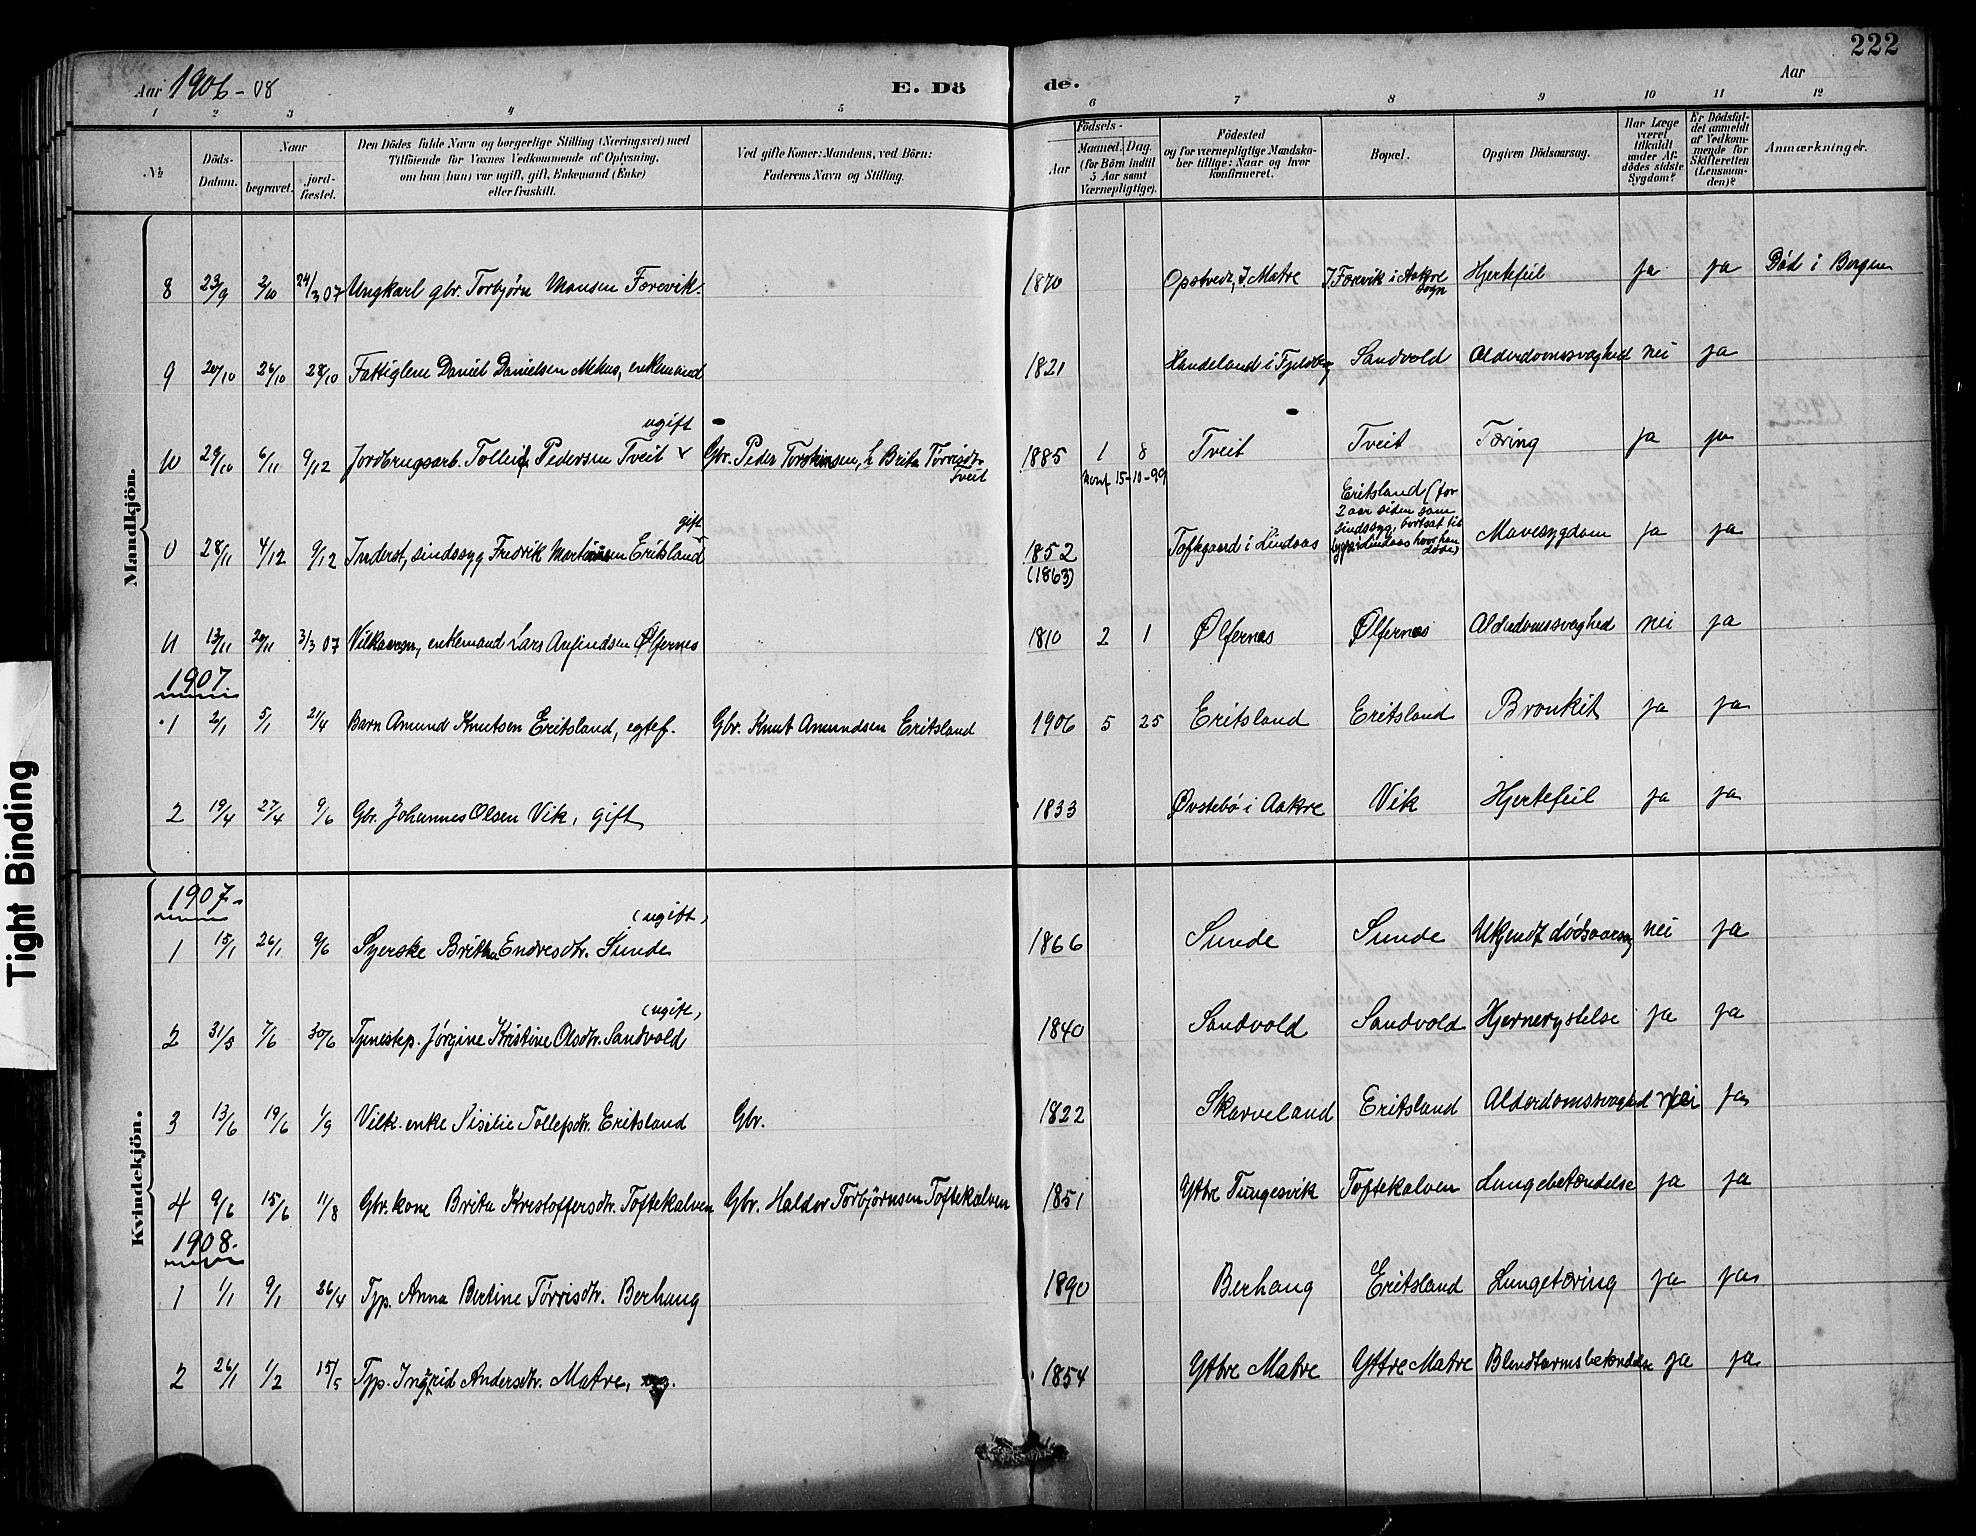 222
Aar 1906-08 E. Dö de. Aar
1 2 3 4 5 6 7 8 9 10 11 12
№ Döds-Datum. Naar begravet. jordfæstet. Den Dödes fulde Navn og borgerlige Stilling (Næringsvei) med Tilföiende for Voxnes Vedkommende af Oplysning, om han (hun) var ugift, gift, Enkemand (Enke) eller fraskilt. Ved gifte Koner: Mandens, ved Börn: Faderens Navn og Stilling. Födsels- Aar Maaned. Dag. (for Börn indtil 5 Aar samt Værnepligtige). Födested og for værnepligtige Mandskaber tillige: Naar og hvor konfirmeret. Bopæl. Opgiven Dödsaarsag. Har Læge været tilkaldt under Afdödes sidste Sygdom? Er Dödsfaldet anmeldt af Vedkommende for Skifteretten (Lensmanden)? Anmærkninger.
Mandkjön.
8 23/9 2/10 24/3 07 Ungkarl gbr. Torbjörn Monsen Færevik. 1870 Opstvedt, I. Matre I Færevik i Aakre sogn Hjertefeil ja ja Död i Bergen
9 20/10 26/10 28/10 Fattiglem Daniel Danielsen Mehus, enkemand 1821 Handeland i Fjeldberg Sandvold Alderdomssvaghed nei ja
ugift
10 29/10 6/11 9/12 Jordbrugsarb. Tolleif Pedersen Tveit Gbr. Peder Torstensen, h Brita Tørrisdtr Tveit 1885 1 8 Tveit Tveit Tæring ja ja
Konf 15-10-99
gift
0 28/11 4/12 9/12 Inderst, sindssyg Fredrik Martinsen Eritsland 1852 (1863) Toftegaard i Lindaas Eritsland (for 2 aar siden som sindssyg, bortsat til Lindaas hvor han döde) Mavesygdom ja ja
11 13/11 20/11 3/3 07 Vilkaarsm, enkemand Lars Arfindsen Ølfernes 1810 2 1 Ølfernes Ølfernes Alderdomssvaghed nei ja
1907
1 2/1 5/1 21/4 Barn Amund Knutsen Eritsland, egtef. Gbr. Knut Amundsen Eritsland 1906 5 25 Eritsland Eritsland Bronkit ja ja
2 19/4 27/4 9/6 Gbr. Johannes Olsen Vik, gift 1833 Øvstebö i Aakre Vik Hjertefeil ja ja
Kvindekjön.
1907-
(ugift)
1 15/1 26/1 9/6 Syerske Britha Endresdtr. Sunde 1866 Sunde Sunde Ukjendt dødsaarsag nei ja
(ugift)
2 31/5 7/6 30/6 Tjenestep. Jørgine Kristine Olsdtr. Sandvold 1840 Sandvold Sandvold Hjernerystelse ja ja
3 13/6 19/6 1/9 Vilk. enke Sisilie Tollefsdtr. Eritsland Gbr. 1822 Skarveland Eritsland Alderdomssvaghed nei ja
4 9/6 15/6 11/8 Gbr. kone Brita Kristoffersdtr. Toftekalven Gbr. Haldor Torbjörnsen Toftekalven 1851 Yttre Tungesvik Toftekalven Lungebetændelse ja ja
1908.
1 1/1 9/1 26/4 Typ. Anna Bertine Tørrisdtr. Berhaug 1890 Berhaug Eritsland Lungetæring ja ja
2 26/1 1/2 15/5 Typ. Ingrid Andersdtr. Matre, ug. 1854 Yttre Matre Yttre Matre Blindtarmsbetændelse ja ja
Tight Binding